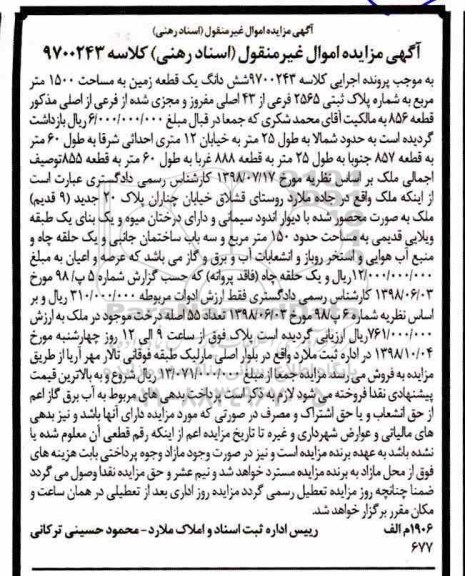 آگهی مزایده اموال غیرمنقول (اسناد رهنی)
آگهی مزایده اموال غیرمنقول (اسناد رهنی) کلاسه ۹۷۰۰۲۴۳
به موجب پرونده اجرایی کلاسه ۹۷۰۰۲۴۳ شش دانگ یک قطعه زمین به مساحت ۱۵۰۰ متر
مربع به شماره پلاک ثبتی ۲۵۶۵ فرعی از ۴۳ اصلی مفروز و مجزی شده از فرعی از اصلی مذکور
قطعه ۸۵۶ به مالکیت آقای محمد شکری که جمعا در قبال مبلغ ۶/۰۰۰/۰۰۰/۰۰۰ ریال بازداشت
گردیده است به حدود شمالا به طول ۲۵ متر به خیابان ۱۲ متری احداثی شرقا به طول ۶۰ متر
به قطعه ۸۵۷ جنوبا به طول ۲۵ متر به قطعه ۸۸۸ غربا به طول ۶۰ متر به قطعه ۸۵۵ توصیف
اجمالی ملک بر اساس نظریه مورخ ۱۳۹۸/۰۷/۱۷ کارشناس رسمی دادگستری عبارت است
از اینکه ملک واقع در جاده ملارد روستای قشلاق خیابان چناران پلاک ۲۰ جدید (۹ قدیم)
ملک به صورت محصور شده با دیوار اندود سیمانی و دارای درختان میوه و یک بنای یک طبقه
ویلایی قدیمی به مساحت حدود ۱۵۰ متر مربع و سه باب ساختمان جانبی و یک حلقه چاه و
منبع آب هوایی و استخر روباز و انشعابات آب و برق و گاز می باشد که عرصه و اعیان به مبلغ
۱۲/۰۰۰/۰۰۰/۰۰۰ ریال و یک حلقه چاه (فاقد پروانه) که حسب گزارش شماره ۵ پ/ ۹۸ مورخ
۱۳۹۸/۰۶/۰۳ کارشناس رسمی دادگستری فقط ارزش ادوات مربوطه ۳۱۰/۰۰۰/۰۰۰ ریال و بر
اساس نظریه شماره ۶ پ ۹۸ مورخ ۱۳۹۸/۰۶/۰۳ تعداد ۵۵ اصله درخت موجود در ملک به ارزش
۷۶۱/۰۰۰/۰۰۰ ریال ارزیابی گردیده است پلاک فوق از ساعت ۹ الی ۱۲ روز چهارشنبه مورخ
۱۳۹۸/۱۰/۰۴ در اداره ثبت ملارد واقع در بلوار اصلی مارلیک طبقه فوقانی تالار مهر آریا از طریق
مزایده به فروش می رسد مزایده جمیعا از مبلغ ۱۳/۰۷۱/۰۰۰/۰۰۰ ریال شروع و به بالاترین قیمت
پیشنهادی نقدا فروخته می شود لازم به ذکر است پرداخت بدهی های مربوط به آب برق گاز اعم
از حق انشعاب و یا حق اشتراک و مصرف در صورتی که مورد مزایده دارای آنها باشد و نیز بدهی
های مالیاتی و عوارض شهرداری و غیره تا تاریخ مزایده اعم از اینکه رقم قطعی آن معلوم شده یا
نشده باشد به عهده برنده مزایده است و نیز در صورت وجود مازاد وجوه پرداختی بابت هزینه های
فوق از محل مازاد به برنده مزایده مسترد خواهد شد و نیم عشر و حق مزایده نقدا وصول می گردد
ضمنا چنانچه روز مزایده تعطیل رسمی گردد مزایده روز اداری بعد از تعطیلی در همان ساعت و
مکان مقرر برگزار خواهد شد.
۱۹۰۶ م الف رییس اداره ثبت اسناد و املاک ملارد - محمود حسینی ترکانی
۶۷۷